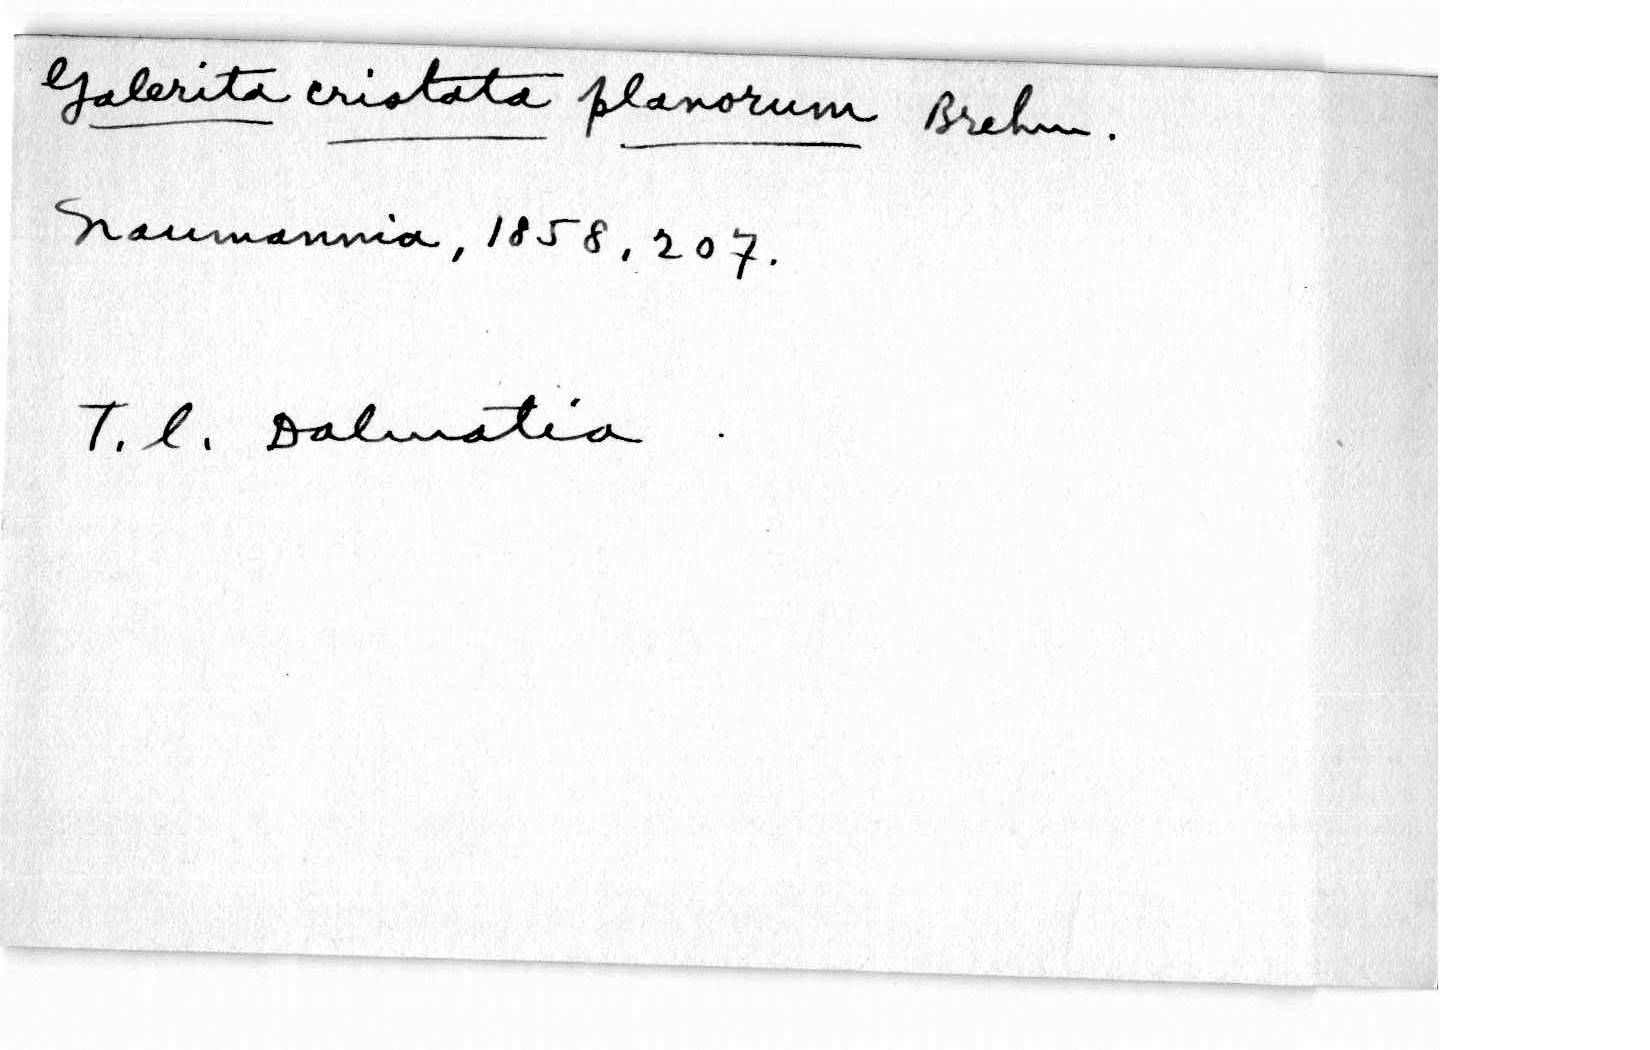 Galerita cristata planorum Brehm.
Naumannia, 1858, 207.
T. l. Dalmatia